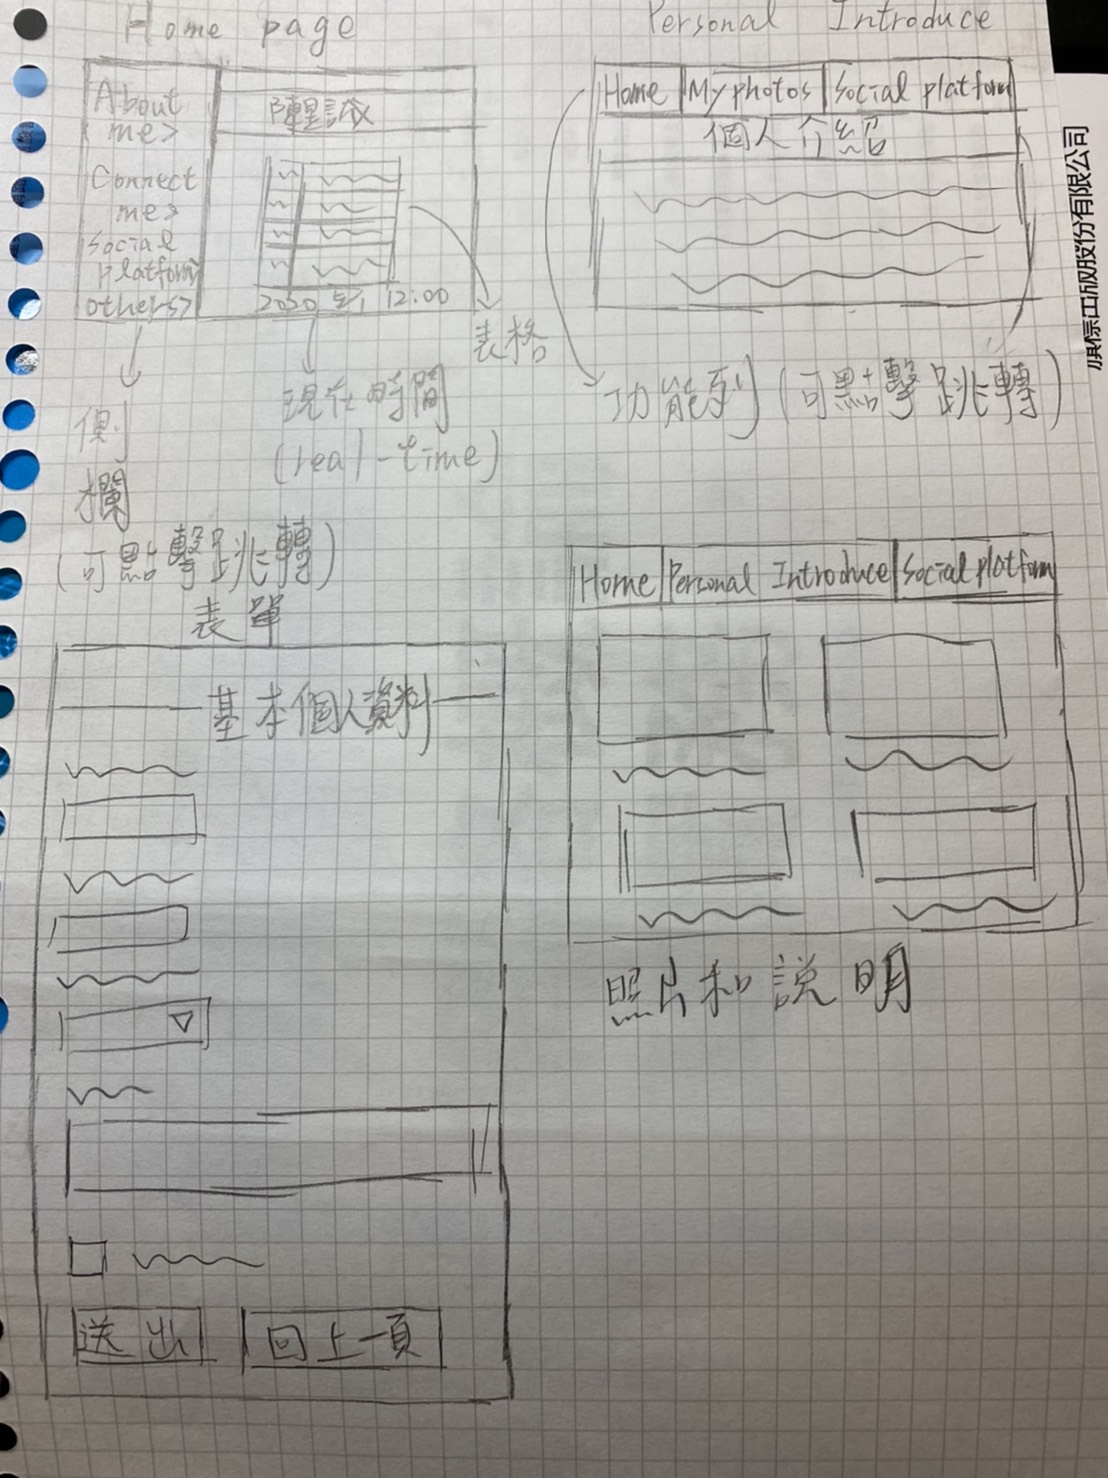 Home page
About
me>
Connect
me>
Social
platform
others>
陳罡誠
2020 5/1 12:00
表格
側
欄
(可點擊跳轉)
現在時間
(real-time)
Personal Introduce
Home My photos Social platform
個人介紹
功能列(可點擊跳轉)
表單
基本個人資料
送出 回上一頁
Home Personal Introduce Social platform
照片和說明
旗標出版股份有限公司